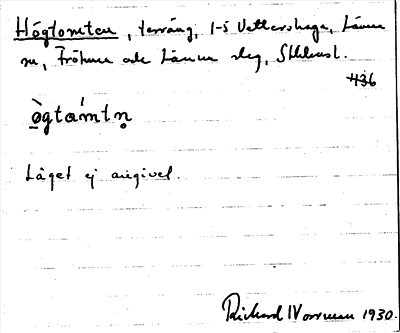 Högtomten, terräng, 1-5 Vettershaga, Länna
sn, Fröhuna och Länna slg, Sthlmsl.
436
ògtám̀tn̥
Läget ej angivet.
Richard Norrman 1930.